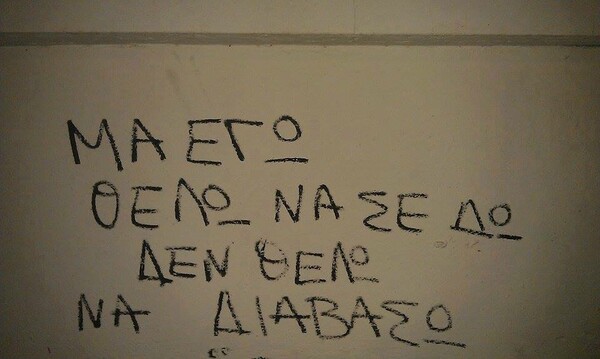 ΜΑ ΕΓΩ
ΘΕΛΩ ΝΑ ΣΕ ΔΩ
ΔΕΝ ΘΕΛΩ
ΝΑ ΔΙΑΒΑΣΩ